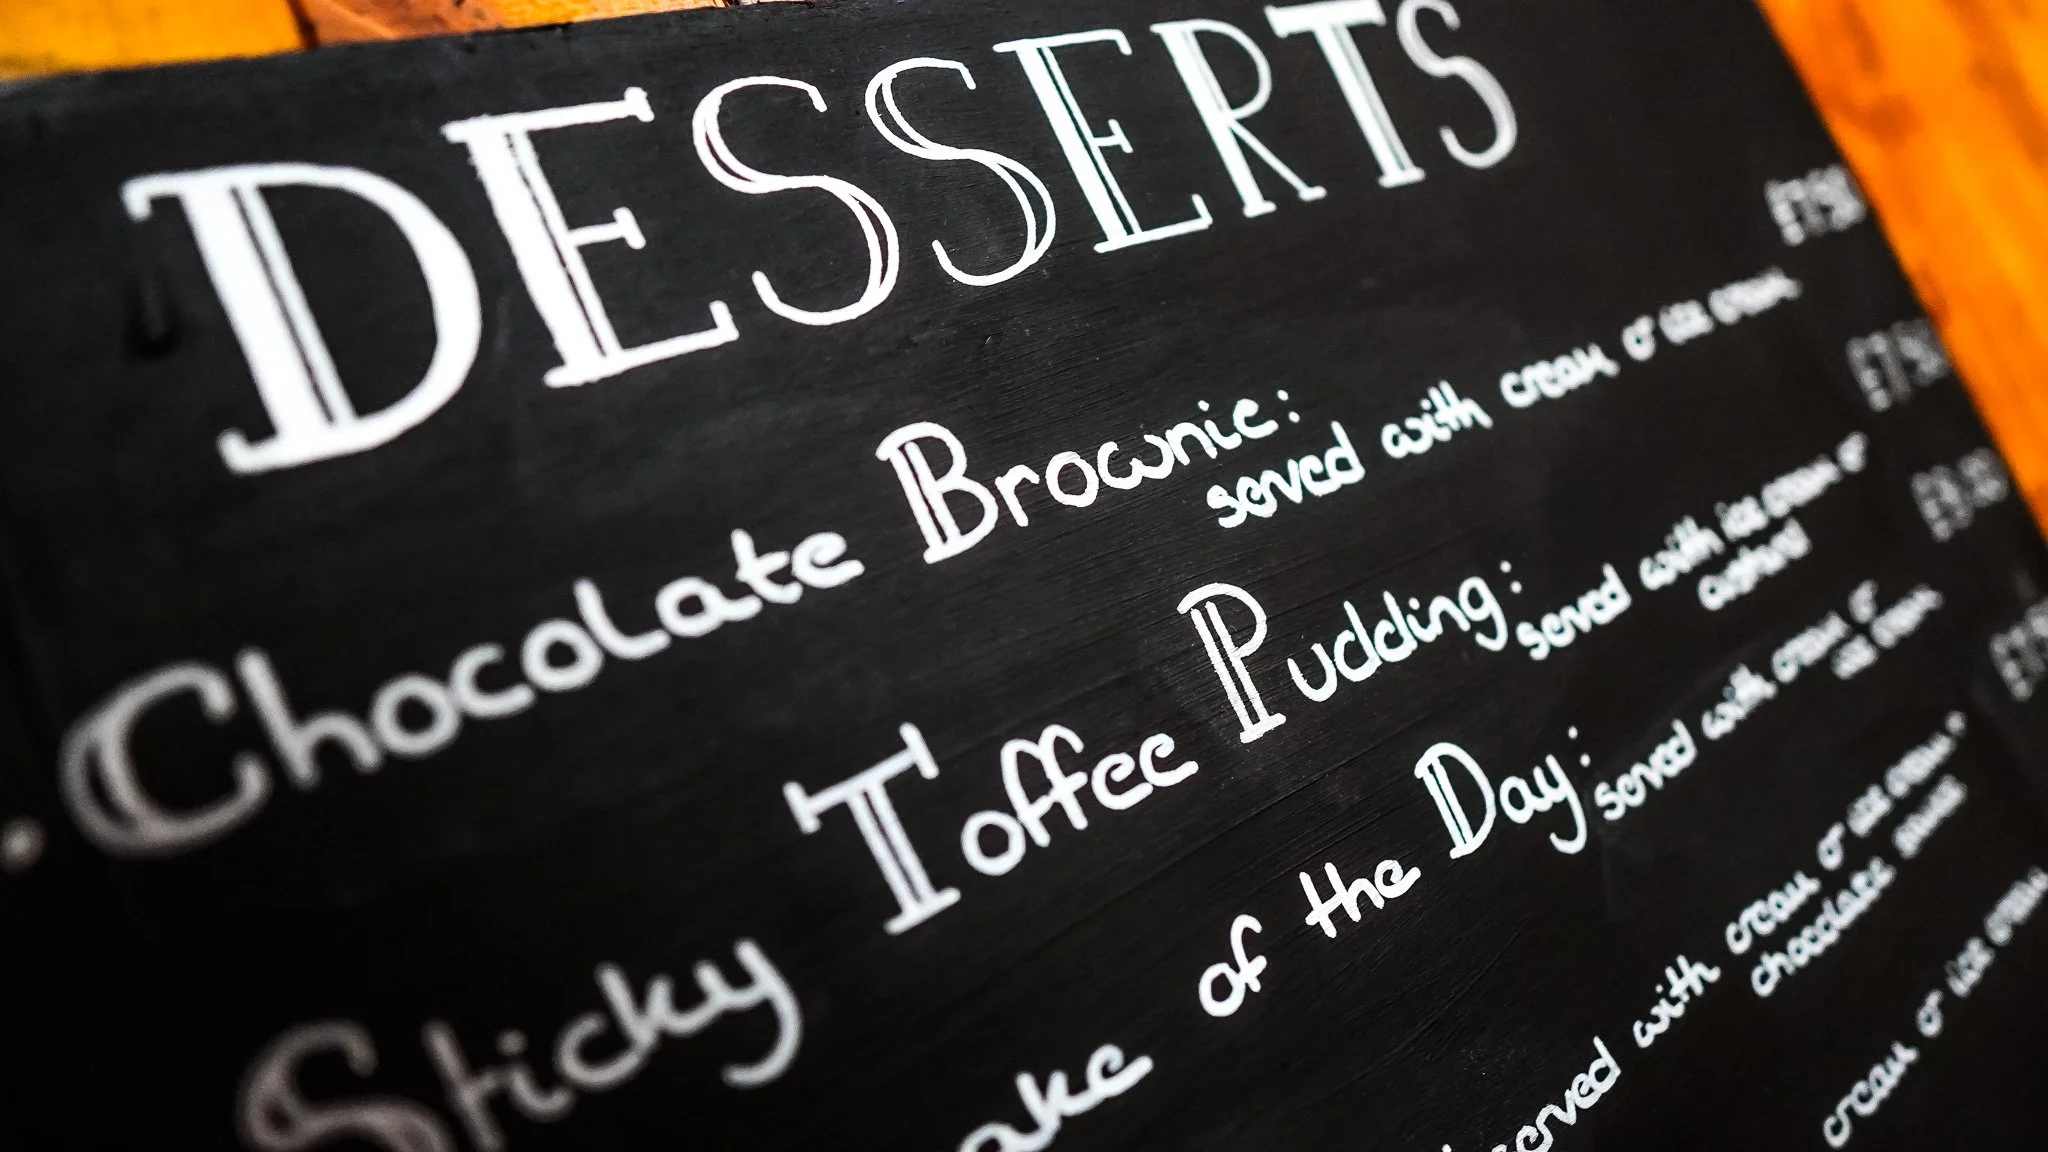 DESSERTS
Chocolate Brownie: £7.50
served with cream or ice cream
Sticky Toffee Pudding: £7.50
served with ice cream or
custard
of the Day:
served with cream or
ice cream
served with cream or ice cream +
chocolate sauce
cream or ice cream